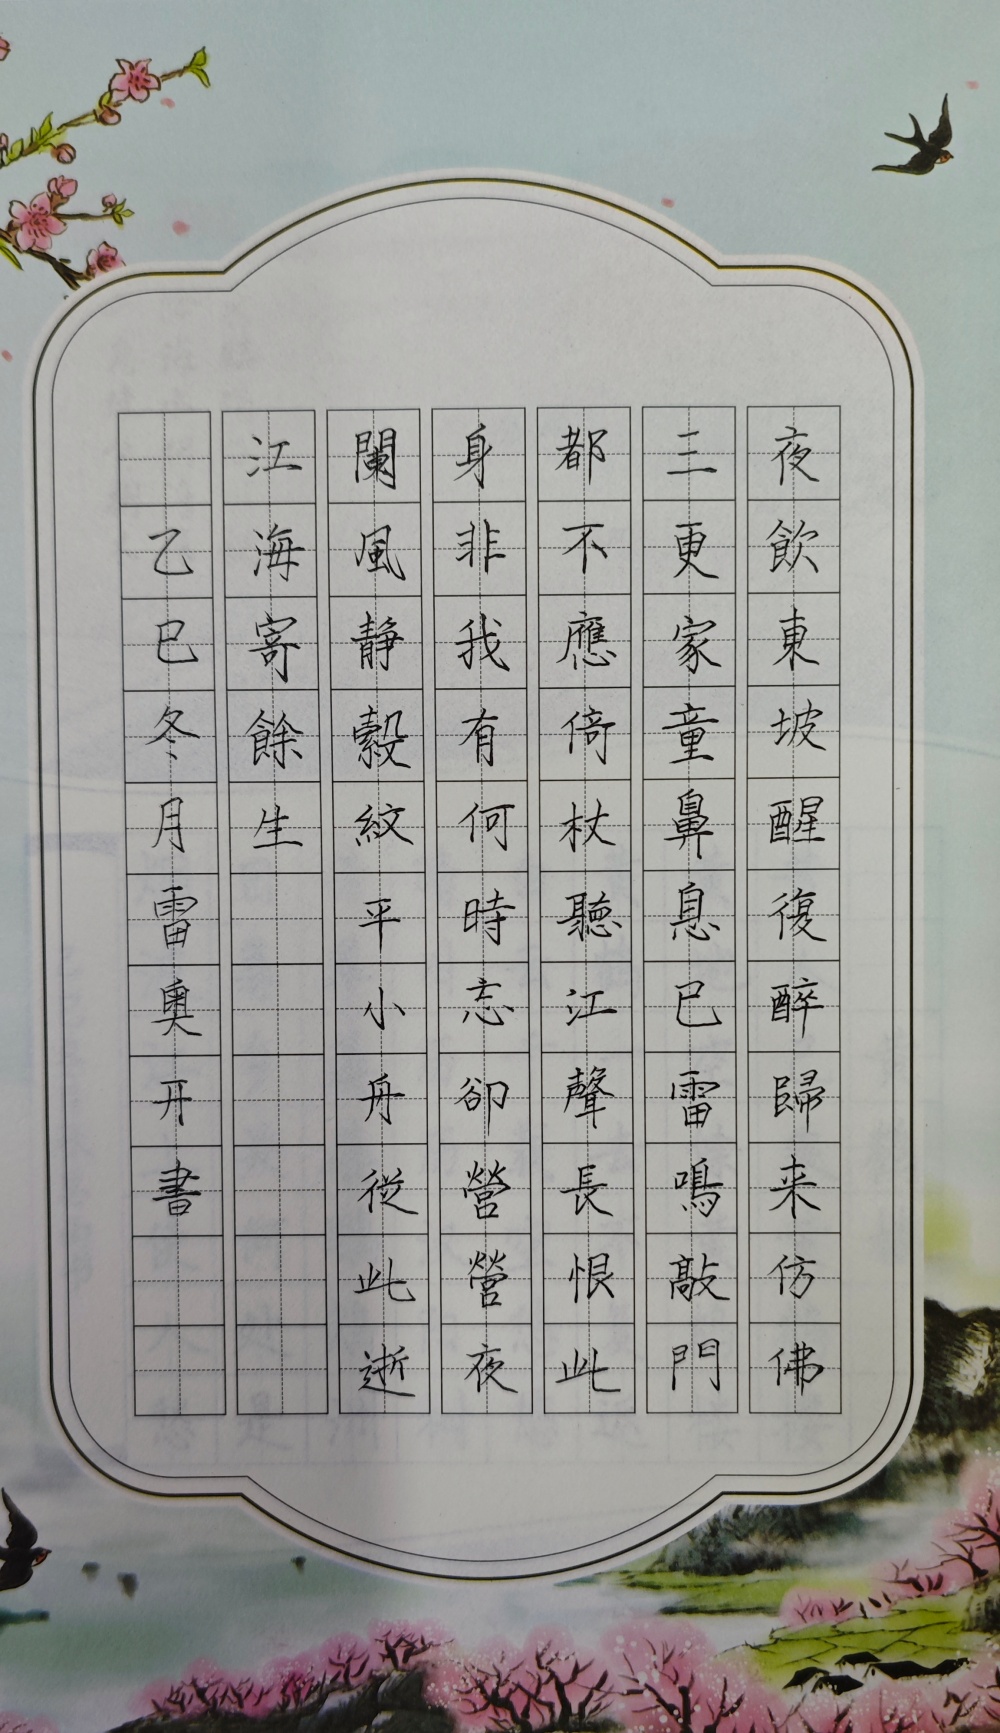 夜飲東坡醒復醉歸来仿佛
三更家童鼻息已雷鳴敲門
都不應倚杖聽江聲長恨此
身非我有何時忘卻營營夜
闌風靜縠紋平小舟從此逝
江海寄餘生
乙巳冬月雷奥开書